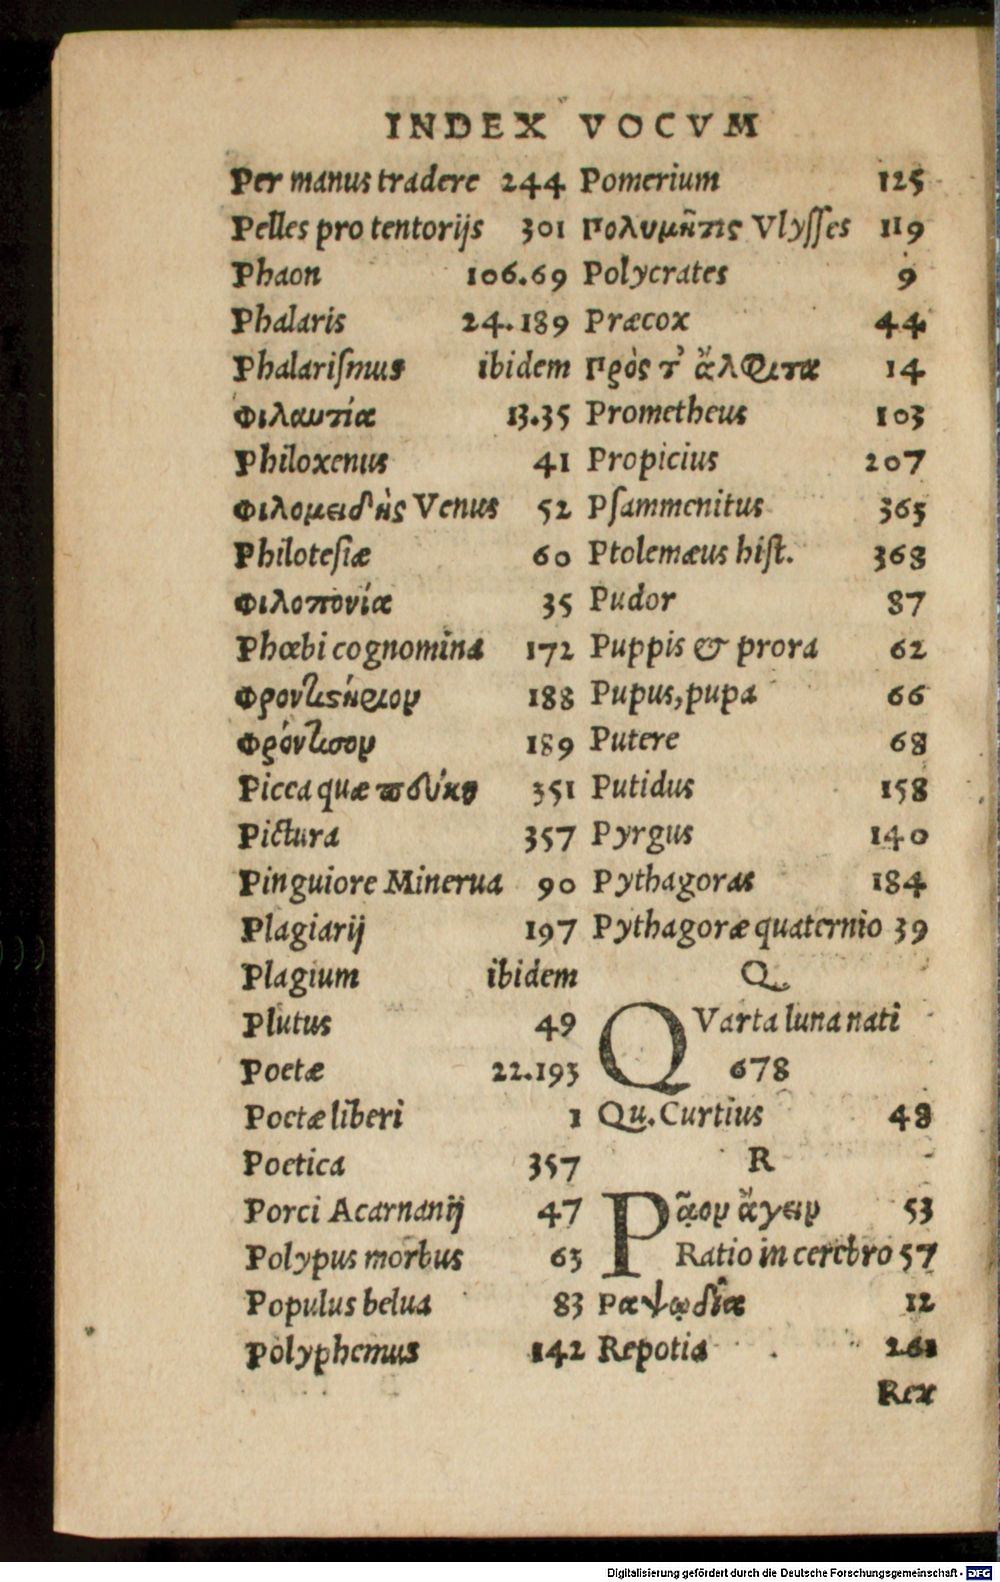 INDEX VOCVM
Per manus tradere 244
Pelles pro tentorijs 301
Phaon 106.69
Phalaris 24.189
Phalariſmus ibidem
Φιλαυτία 13.35
Philoxenus 41
Φιλομειδὴς Venus 52
Philoteſiæ 60
Φιλοπονία 35
Phœbi cognomina 172
Φροντιςήριον 188
Φρόντισον 189
Picea quæ πεύκη 351
Pictura 357
Pinguiore Minerua 90
Plagiarij 197
Plagium ibidem
Plutus 49
Poetæ 22.193
Poetæ liberi 1
Poetica 357
Porci Acarnanij 47
Polypus morbus 63
Populus belua 83
Polyphemus 142
Pomerium 125
Πολυμῆτις Vlyſſes 119
Polycrates 9
Præcox 44
Πρὸς τ' ἄλφιτα 14
Prometheus 103
Propicius 207
Pſammenitus 365
Ptolemæus hiſt. 368
Pudor 87
Puppis & prora 62
Pupus, pupa 66
Putere 68
Putidus 158
Pyrgus 140
Pythagoras 184
Pythagoræ quaternio 39
Q
QVarta luna nati
678
Qu. Curtius 48
R
Ρᾷον ἄγειν 53
Ratio in cerebro 57
Ραψῳδία 12
Repotia 261
Rex
Digitalisierung gefördert durch die Deutsche Forschungsgemeinschaft - DFG